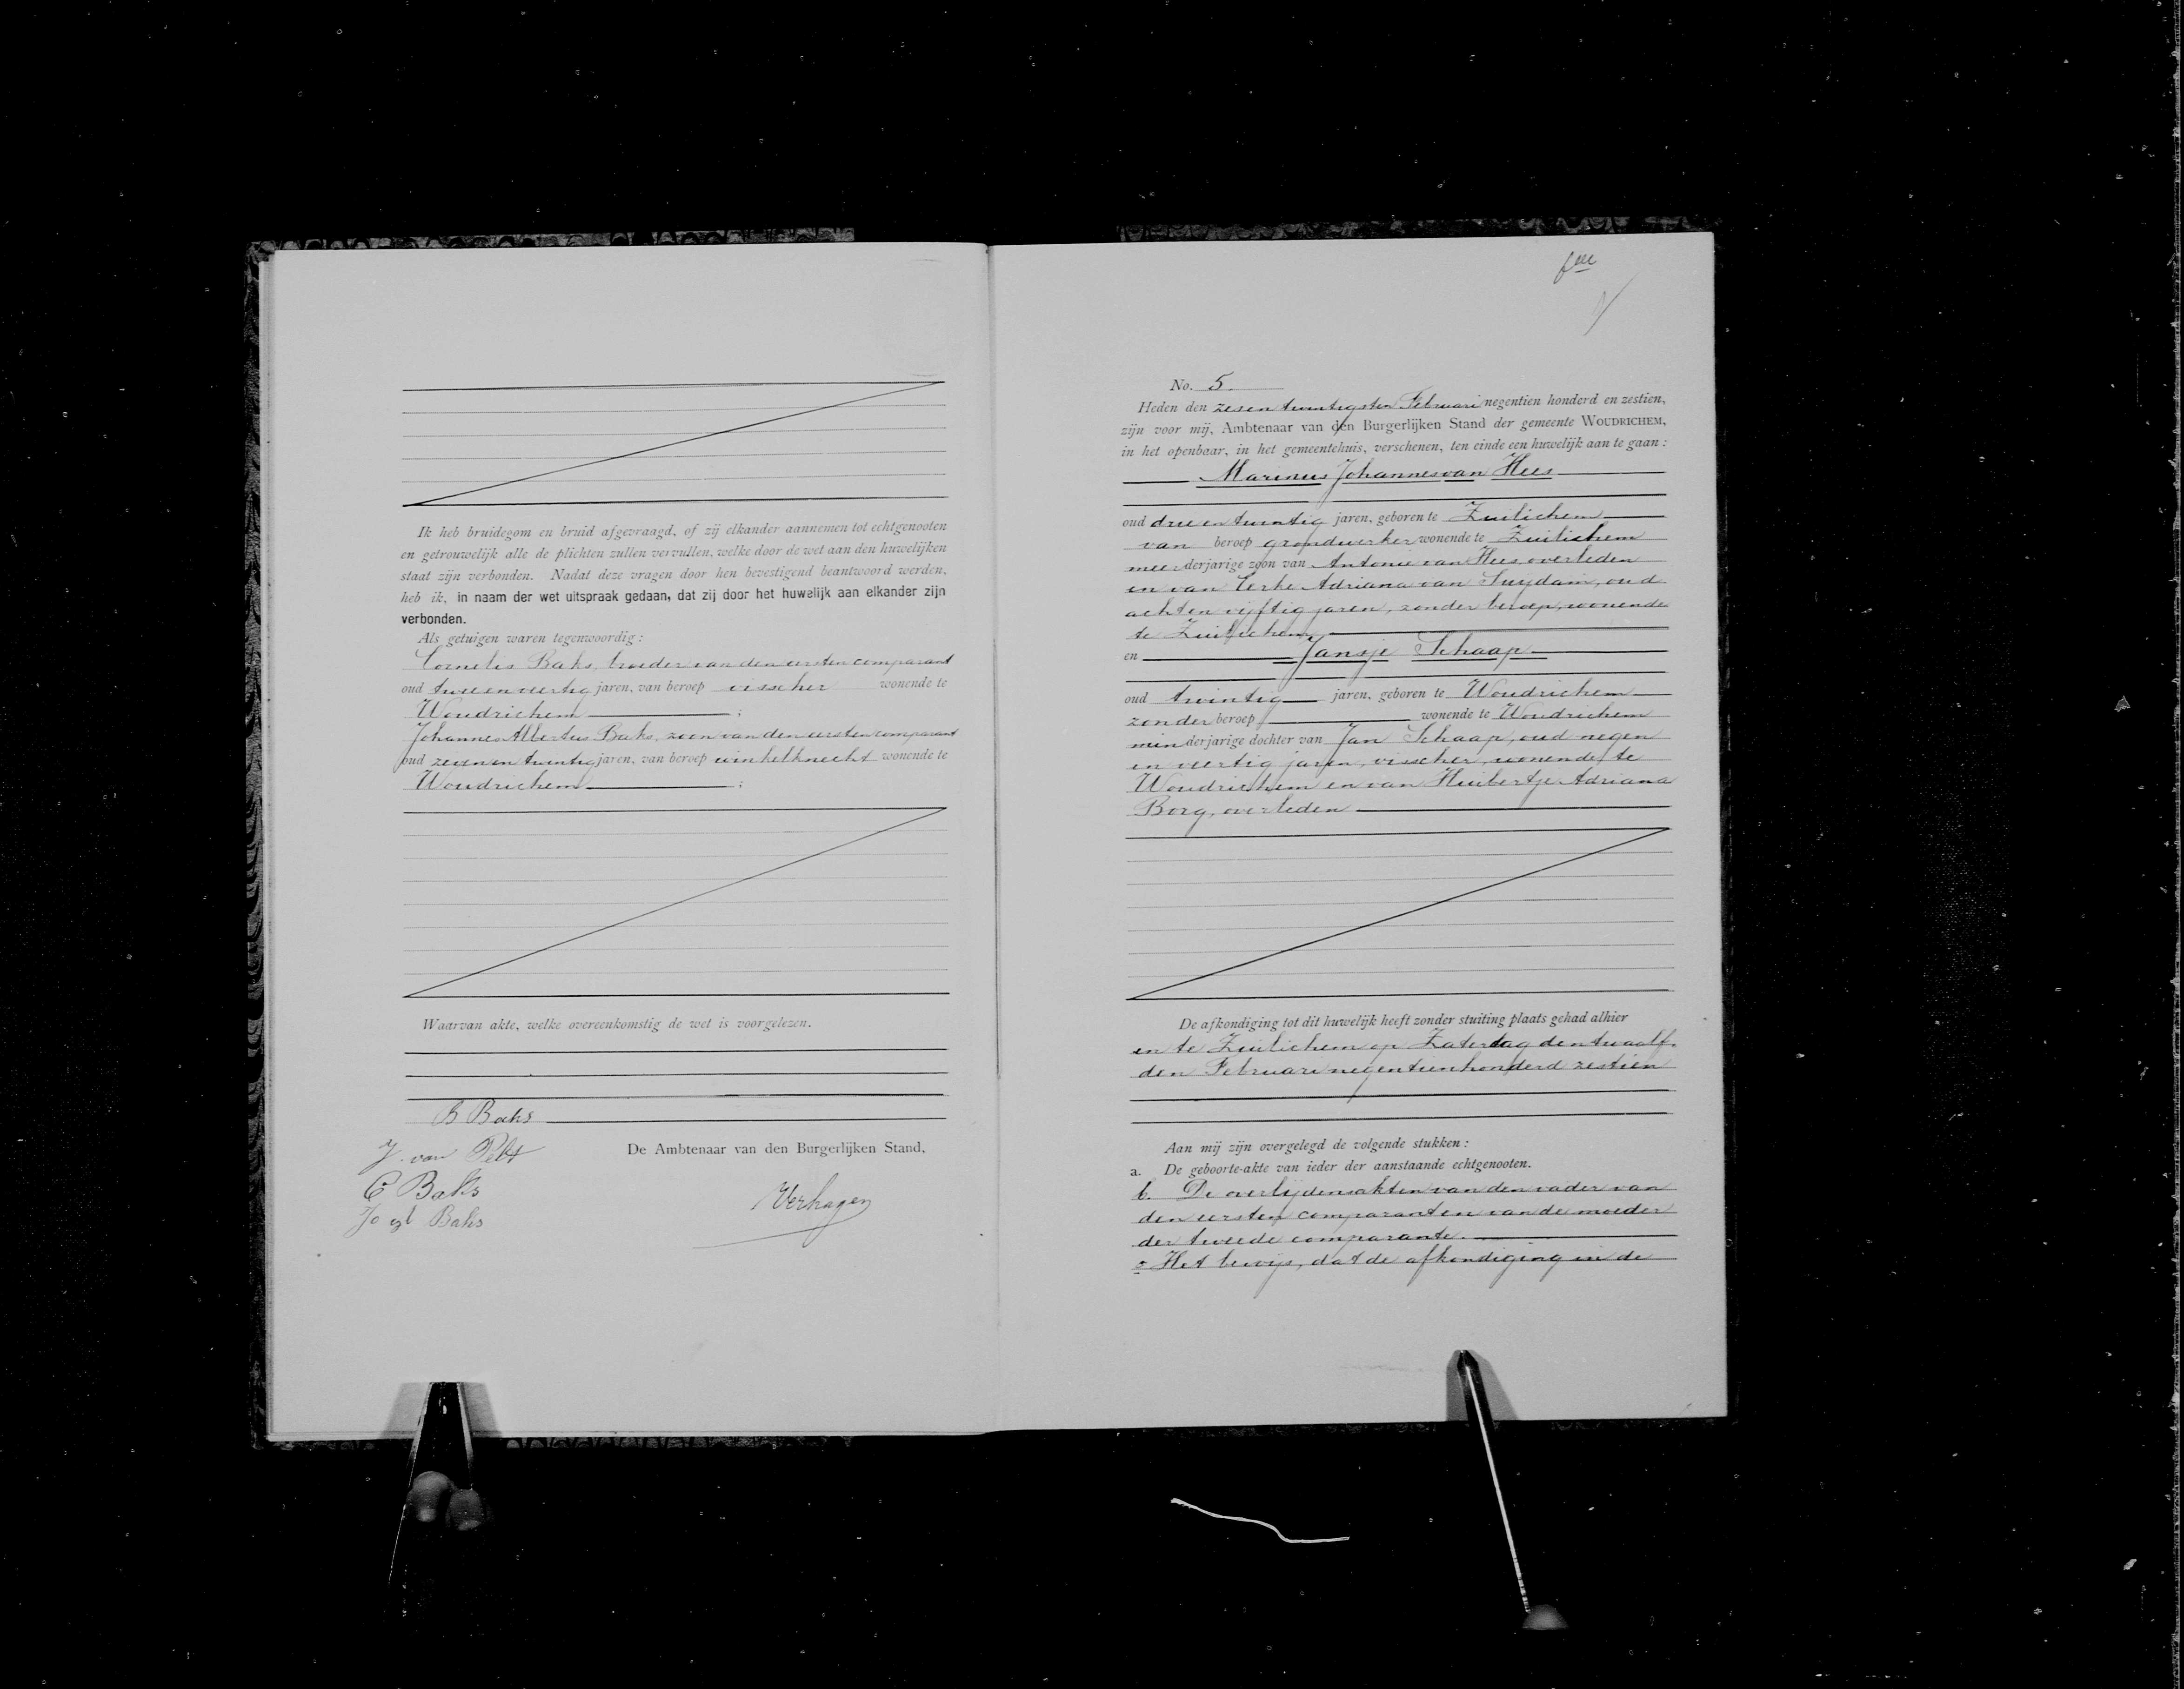 Ik heb bruidegom en bruid afgevraagd, of zij elkander aannemen tot echtgenooten
en getrouwelijk alle de plichten zullen vervullen, welke door de wet aan den huwelijken
staat zijn verbonden. Nadat deze vragen door hen bevestigend beantwoord werden,
heb ik, in naam der wet uitspraak gedaan, dat zij door het huwelijk aan elkander zijn
verbonden.
Als getuigen waren tegenwoordig:
Cornelis Baks, broeder van den eersten comparant
oud twee en veertig jaren, van beroep visscher wonende te
Woudrichem ;
Johannes Albertus Baks, zoon van den eersten comparant
oud zeven en twintig jaren, van beroep winkelknecht wonende te
Woudrichem ;
Waarvan akte, welke overeenkomstig de wet is voorgelezen.
B Baks
J. van Pelt
De Ambtenaar van den Burgerlijken Stand,
C Baks
Verhagen
Baks
No. 5.
Heden den zesentwintigsten Februari negentien honderd en zestien,
zijn voor mij, Ambtenaar van den Burgerlijken Stand der gemeente WOUDRICHEM,
in het openbaar, in het gemeentehuis, verschenen, ten einde een huwelijk aan te gaan:
Marinus Johannes van Hees
oud drie en twintig jaren, geboren te Zuilichem
van beroep grondwerker wonende te Zuilichem
meerderjarige zoon van Antonie van Hees overleden
en van Adriana van Suydam, oud
acht en vijftig jaren, zonder beroep, wonende
te Zuilichem
en Jansje Schaap
oud twintig jaren, geboren te Woudrichem
zonder beroep wonende te Woudrichem
minderjarige dochter van Jan Schaap, oud negen
en veertig jaren, visscher, wonende te
Woudrichem en van Huibertje Adriana
Borg, overleden
De afkondiging tot dit huwelijk heeft zonder stuiting plaats gehad alhier
en te Zuilichem op Zaterdag den twaalf-
den Februari negentienhonderd zestien
Aan mij zijn overgelegd de volgende stukken:
a. De geboorte-akte van ieder der aanstaande echtgenooten.
b. De overlijdensakten van den vader van
den eersten comparant en van de moeder
der tweede comparante.
c Het bewijs, dat de afkondiging in de